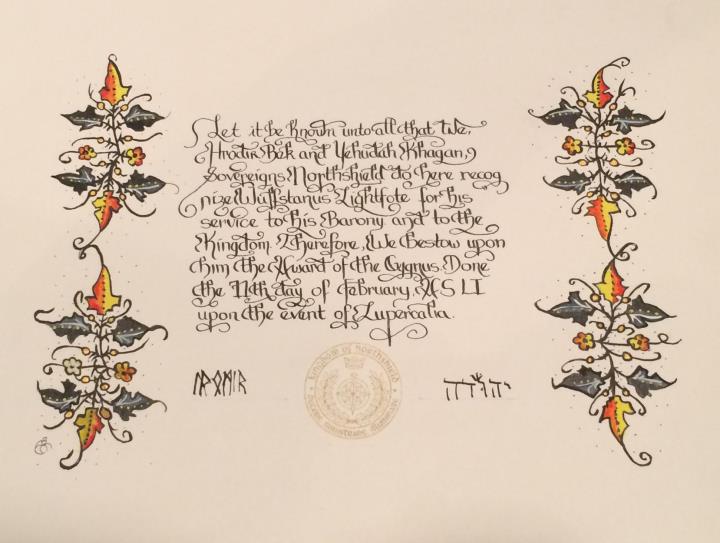 Let it be known unto all that We,
Hrodir Bák and Yehudah Khagan,
Sovereigns Northshield do here recog
nize Wulfstanus Lightfote for his
service to his Barony and to the
Kingdom. Therefore, We Bestow upon
him the Award of the Cygnus. Done
the 11th Day of February, A S LI
upon the event of Lupercalia.
Kingdom of Northshield
יהודה